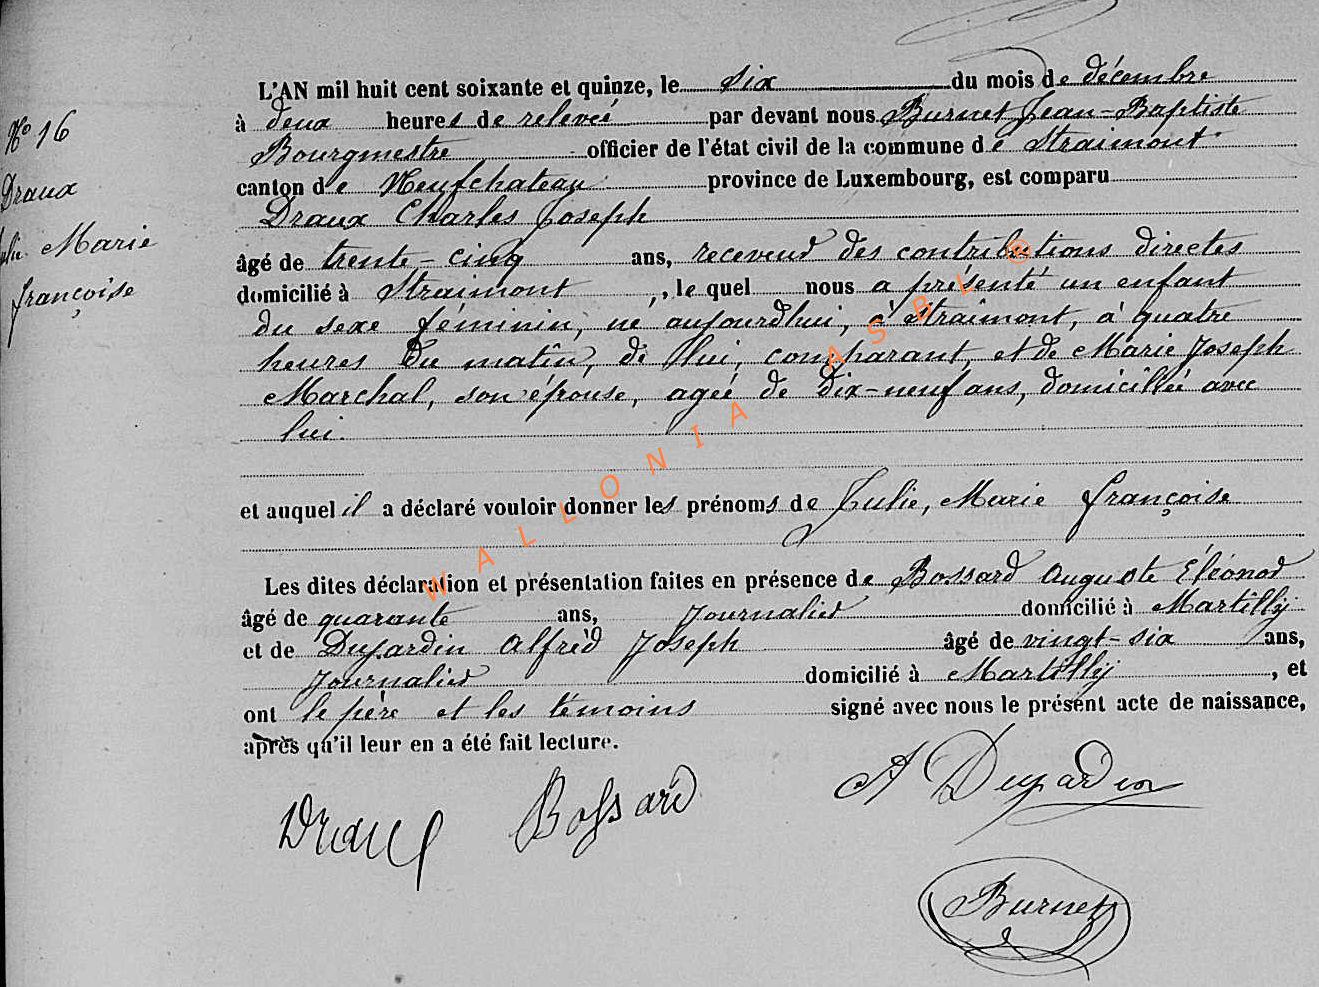 L'AN mil huit cent soixante et quinze, le six du mois de décembre
à deux heures de relevée par devant nous Burnet Jean-Baptiste
Bourgmestre officier de l'état civil de la commune de Straimont
canton de Neufchateau province de Luxembourg, est comparu
Draux Charles Joseph
âgé de trente-cinq ans, receveur des contributions directes
domicilié à Straimont, le quel nous a présenté un enfant
du sexe féminin, né aujourd'hui, à Straimont, à quatre
heures du matin, de lui, comparant, et de Marie Joseph
Marchal, son épouse, agée de dix-neuf ans, domiciliée avec
lui.
et auquel il a déclaré vouloir donner les prénoms de Julie, Marie Françoise
Les dites déclaration et présentation faites en présence de Bossard Auguste Éléonor
âgé de quarante ans, Journalier domicilié à Martilly
et de Dujardin Alfred Joseph âgé de vingt-six ans,
Journalier domicilié à Martilly, et
ont le père et les témoins signé avec nous le présent acte de naissance,
après qu'il leur en a été fait lecture.
Draux Bossard A Dujardin
Burnet
No 16
Draux
Julie Marie
Françoise
WALLONIA ASBL ©